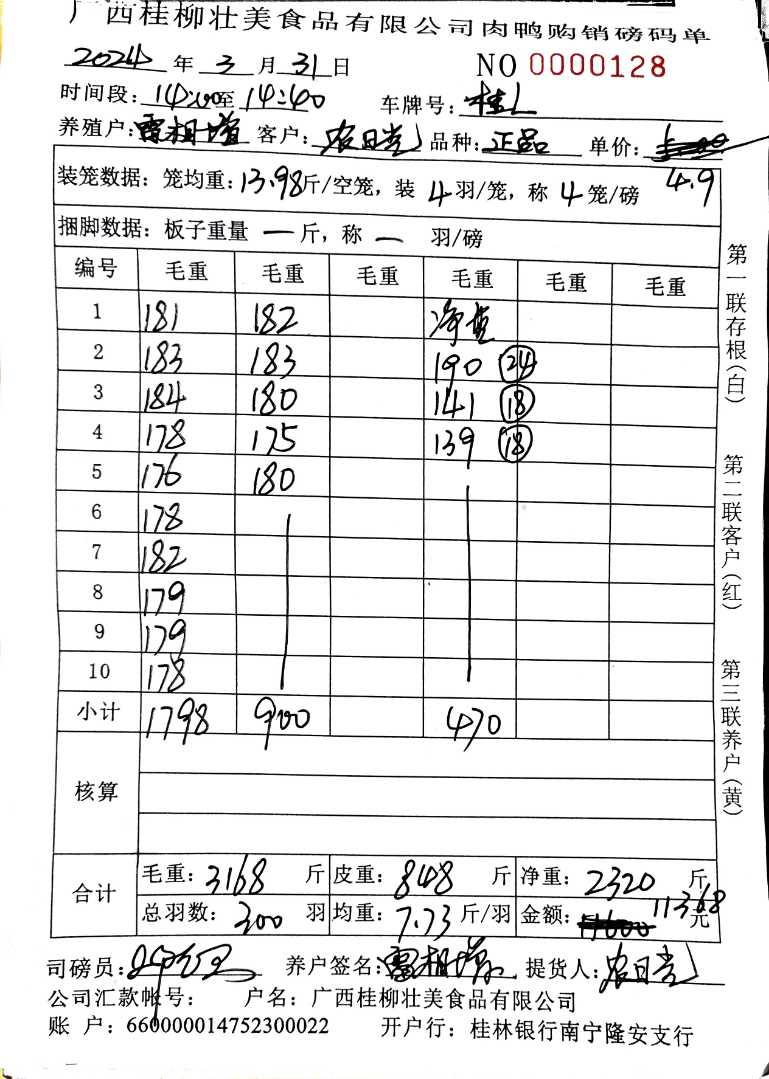 广西桂柳壮美食品有限公司肉鸭购销磅码单
2024 年 3 月 31 日 NO 0000128
时间段: 14:00 至 14:40 车牌号: 桂L
养殖户: 雷相增 客户: 农日光 品种: 正品 单价:
装笼数据: 笼均重: 13.98 斤/空笼, 装 4 羽/笼, 称 4 笼/磅 4.9
捆脚数据: 板子重量 一 斤, 称 一 羽/磅
编号 毛重 毛重 毛重 毛重 毛重 毛重
1 181 182 净重
2 183 183 190 24
3 184 180 141 18
4 178 175 139 18
5 176 180
6 178
7 182
8 179
9 179
10 178
小计 1798 900 470
核算
合计 毛重: 3168 斤 皮重: 848 斤 净重: 2320 斤
总羽数: 300 羽 均重: 7.73 斤/羽 金额: 11368 元
司磅员: 养户签名: 雷相增 提货人: 农日光
公司汇款帐号: 户名: 广西桂柳壮美食品有限公司
账 户: 660000014752300022 开户行: 桂林银行南宁隆安支行
第一联存根(白)
第二联客户(红)
第三联养户(黄)